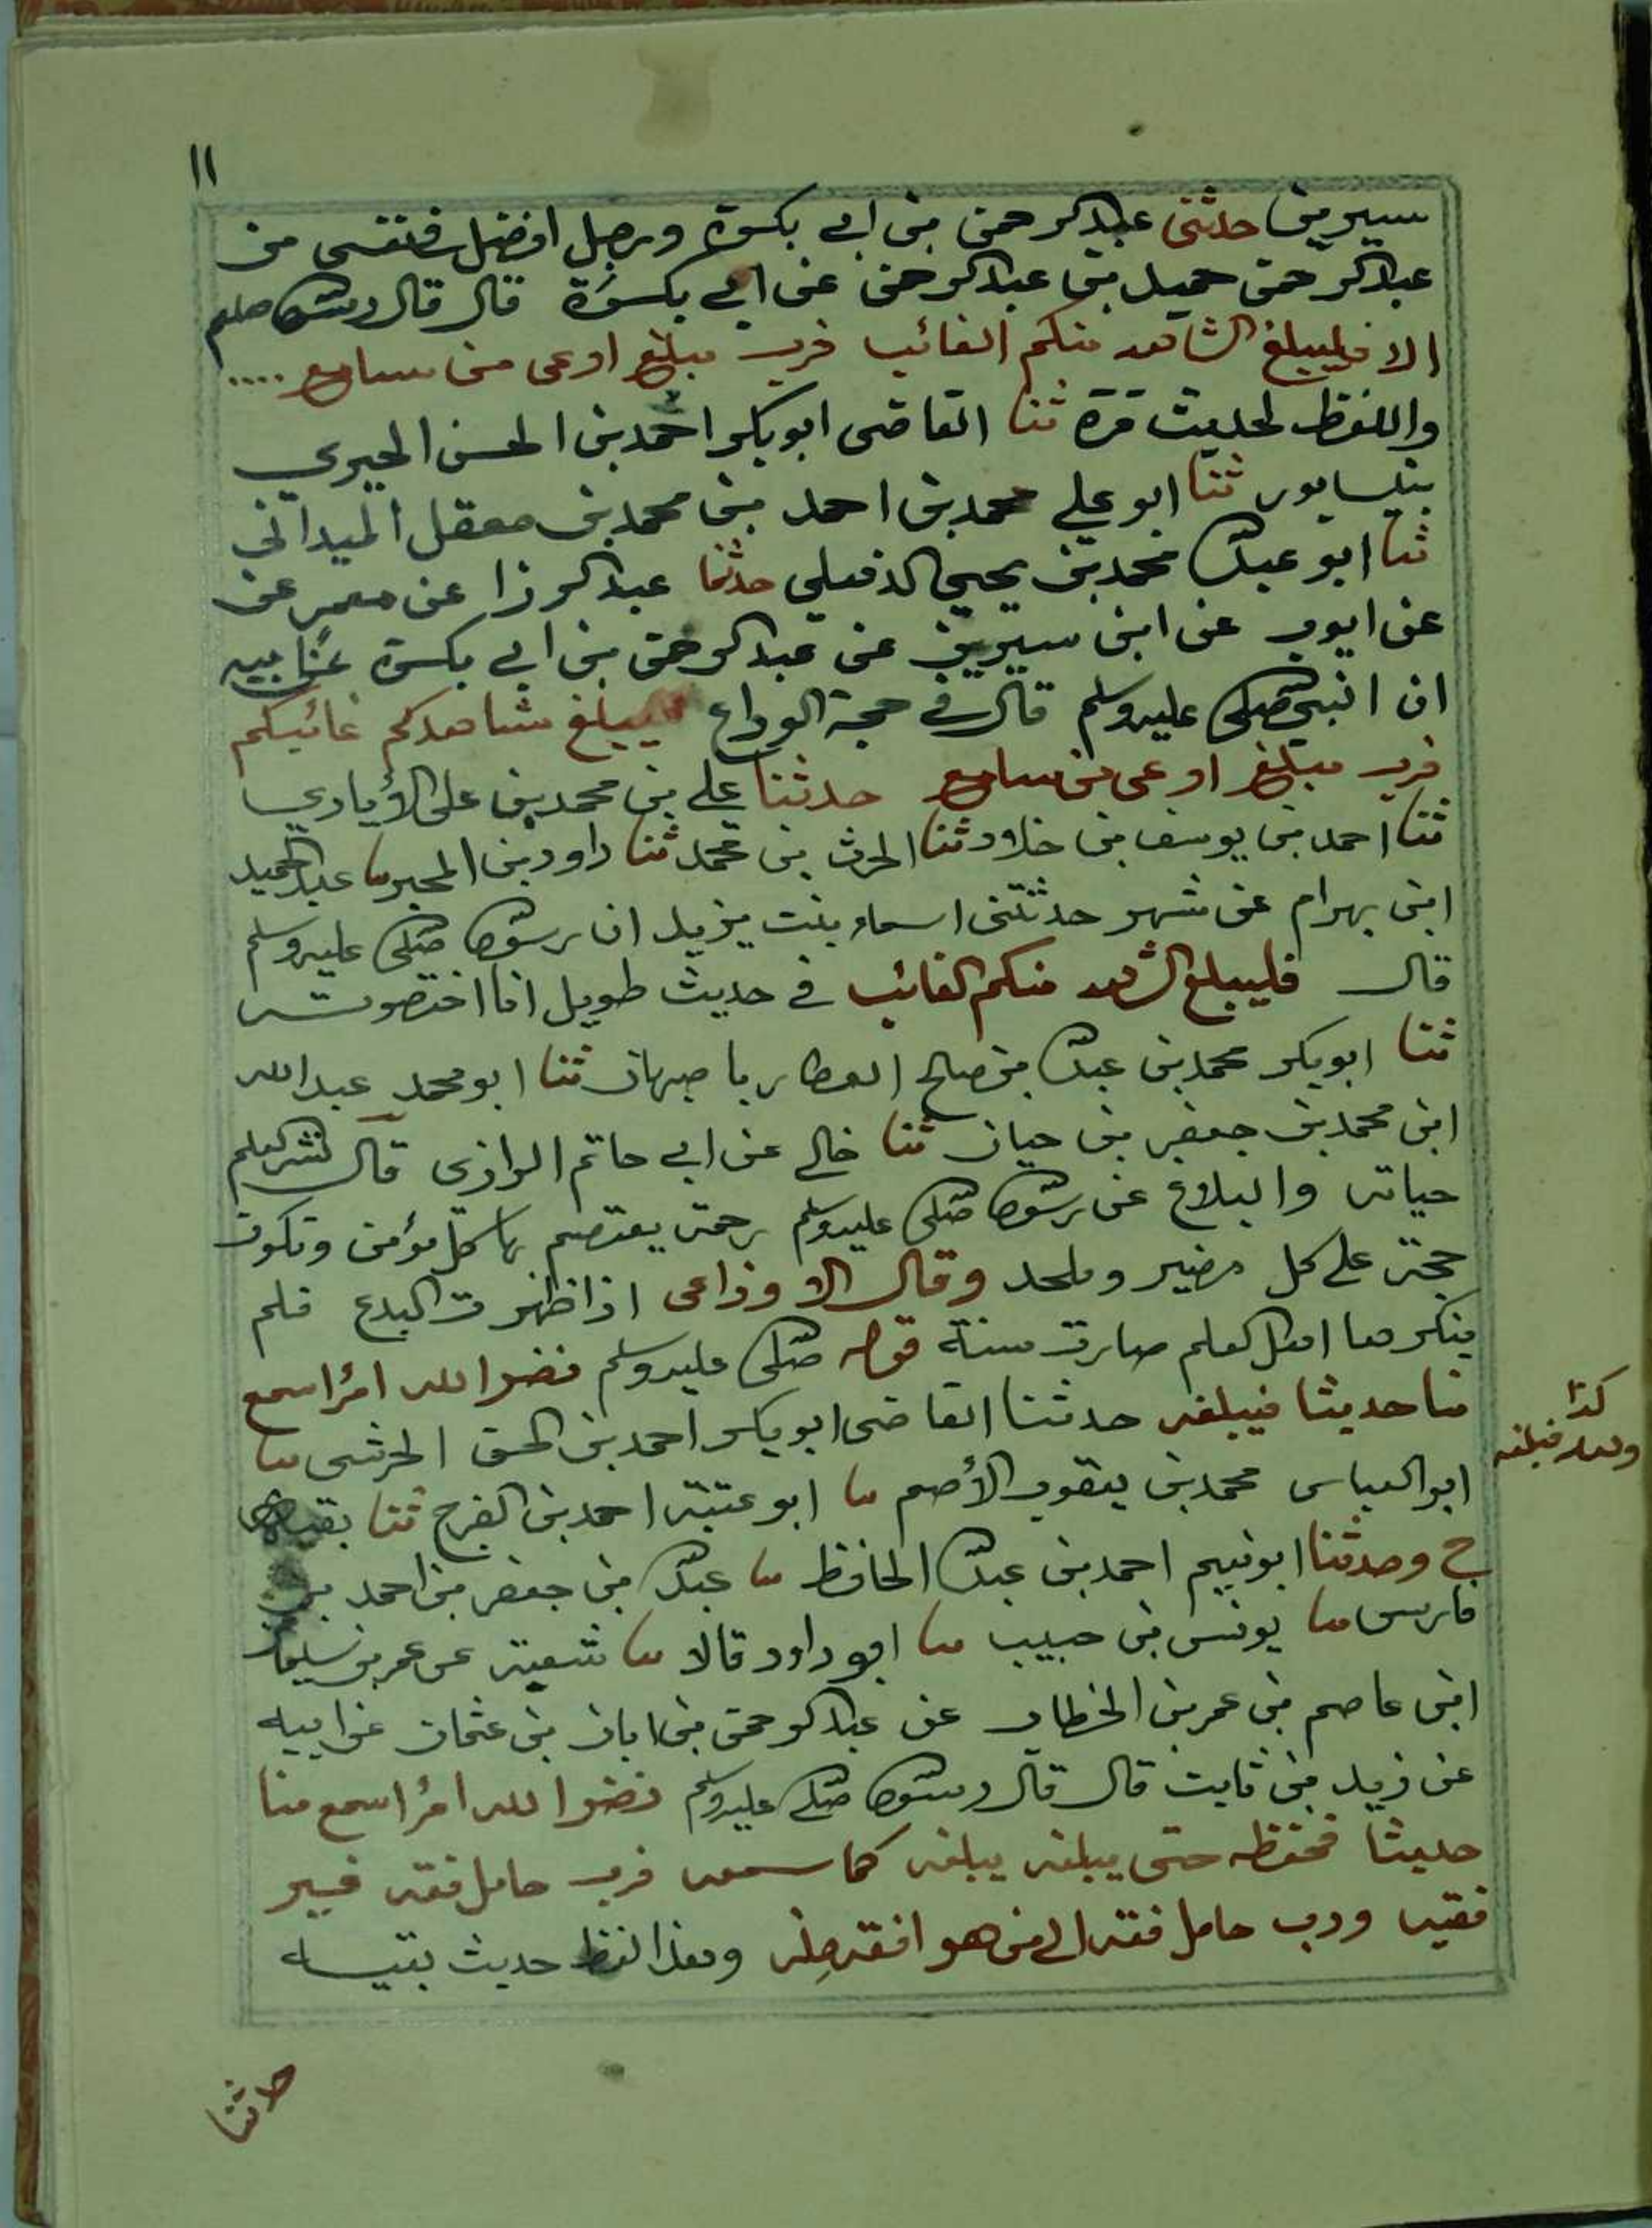 ١١
سيرين حدثني عبدالرحمن بن ابي بكرة ورجل افضل في نفسي من
عبدالرحمن حميد بن عبدالرحمن عن ابي بكرة قال قال رسول الله صلعم
الا فليبلغ الشاهد منكم الغائب فرب مبلغ اوعى من سامع ....
واللفظ لحديث قرة ثنا القاضي ابوبكر احمد بن الحسن الحيري
بنيسابور ثنا ابو علي محمد بن احمد بن محمد بن معقل الميداني
ثنا ابو عبدالله محمد بن يحيى الذهلي حدثنا عبدالرزا عن معمر عن
عن ايوب عن ابن سيرين عن عبدالرحمن بن ابي بكرة عن ابيه
ان النبي صلى الله عليه وسلم قال في حجة الوداع ليبلغ شاهدكم غائبكم
فرب مبلغ اوعى من سامع حدثنا علي بن محمد بن علي الأيادي
ثنا احمد بن يوسف بن خلاد ثنا الحرث بن محمد ثنا داود بن المحبر ثنا عبدالحميد
ابن بهرام عن شهر حدثتني اسماء بنت يزيد ان رسول الله صلى الله عليه وسلم
قال فليبلغ الشاهد منكم الغائب في حديث طويل انا اختصرته
ثنا ابوبكر محمد بن عبدالله بن صالح العطار باصبهان ثنا ابو محمد عبدالله
ابن محمد بن جعفر بن حيان ثنا خالي عن ابي حاتم الرازي قال نشر العلم
حياته والبلاغ عن رسول الله صلى الله عليه وسلم رحمة يعتصم بها كل مؤمن وتكون
حجة على كل مضير وملحد وقال الاوزاعي اذا ظهرت البدع فلم
ينكرها اهل العلم صارت سنة قوله صلى الله عليه وسلم نضر الله امرأ سمع
منا حديثا فيبلغه حدثنا القاضي ابوبكر احمد بن الحسن الحرشي ثنا
كذا
ابوالعباس محمد بن يعقوب الأصم ثنا ابو عتبة احمد بن الفرج ثنا بقية
ح وحدثنا ابو نعيم احمد بن عبدالله الحافظ ثنا عبدالله بن جعفر بن احمد بن
فارس ثنا يونس بن حبيب ثنا ابو داود قالا ثنا شعبة عن عمر بن سليمان
ابن عاصم بن عمر بن الخطاب عن عبدالرحمن بن ابان بن عثمان عن ابيه
عن زيد بن ثابت قال قال رسول الله صلى الله عليه وسلم نضر الله امرأ سمع منا
حديثا فحفظه حتى يبلغه يبلغه كما سمعه فرب حامل فقه غير
فقيه ورب حامل فقه الى من هو افقه منه وهذا لفظ حديث بقية
حدثنا